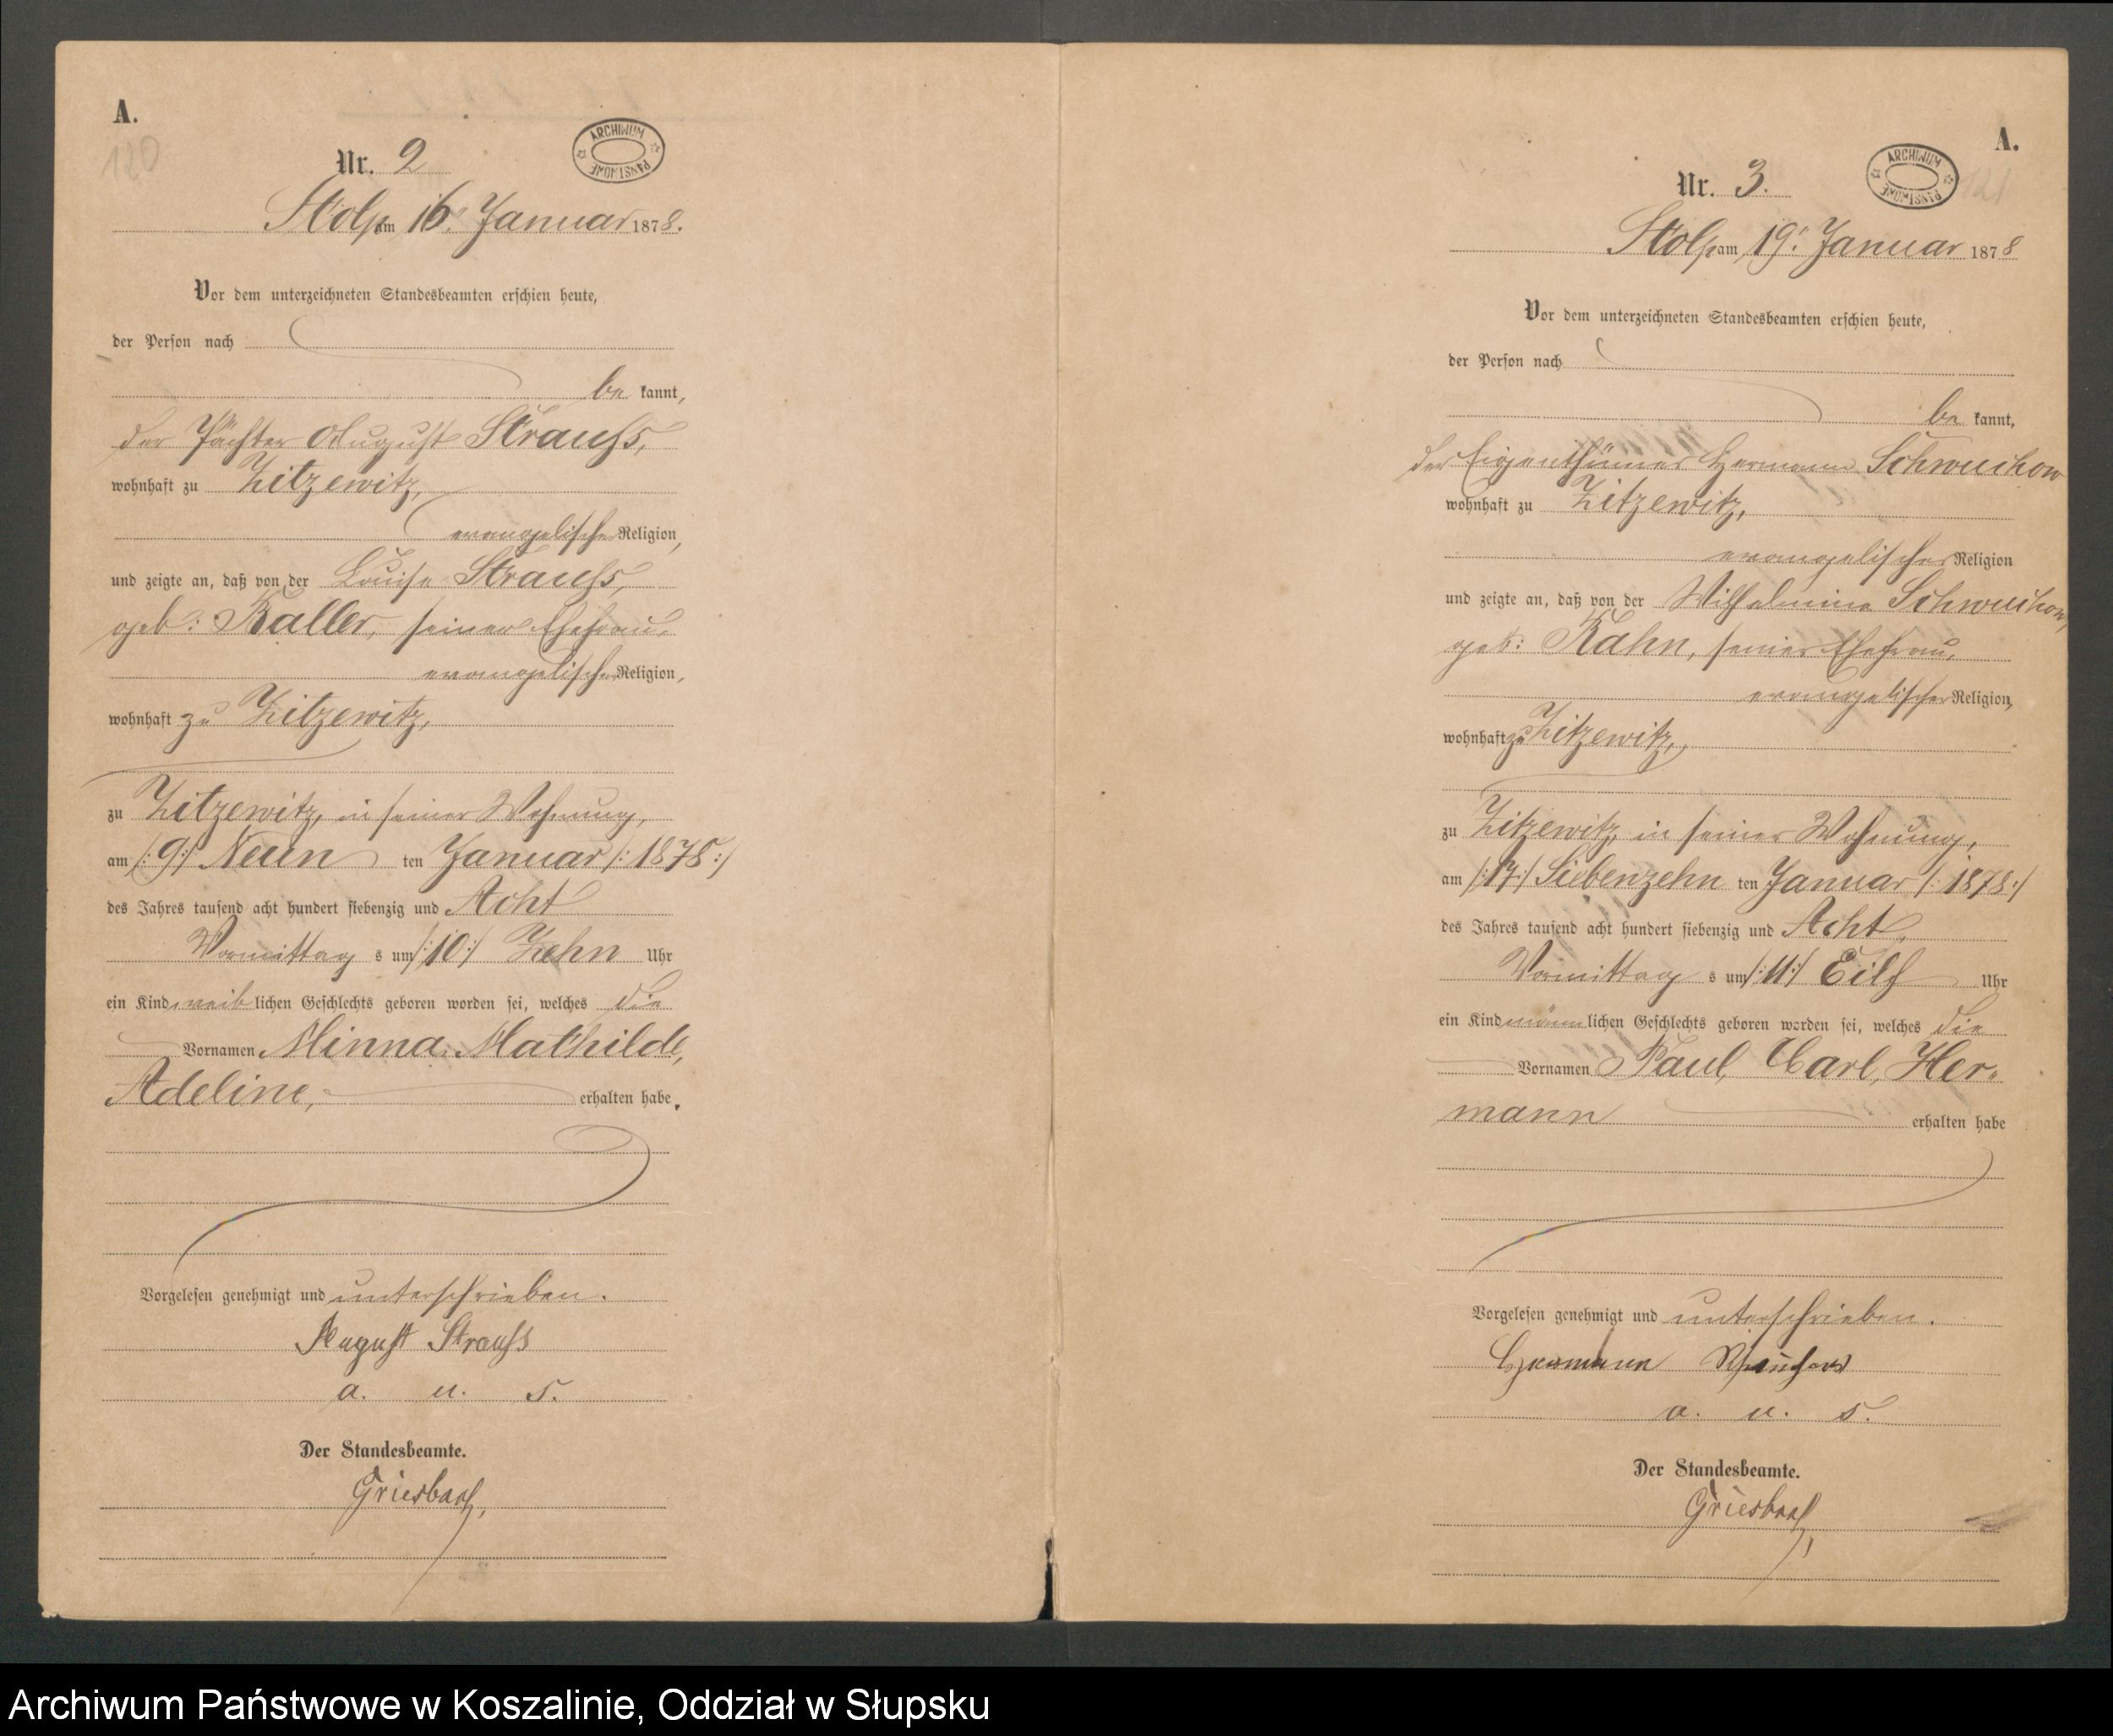 A.
120
Nr. 2
ARCHIWUM PAŃSTWOWE
Stolp am 16. Januar 1878.
Vor dem unterzeichneten Standesbeamten erschien heute,
der Person nach
be kannt,
der Pächter August Strauss,
wohnhaft zu Zitzewitz,
evangelischer Religion,
und zeigte an, daß von der Louise Strauss,
geb: Raller, seiner Ehefrau,
evangelischer Religion,
wohnhaft zu Zitzewitz,
zu Zitzewitz, in seiner Wohnung,
am /:9:/ Neun ten Januar /:1878:/
des Jahres tausend acht hundert siebenzig und Acht
Vormittag s um /:10:/ Zehn Uhr
ein Kind weib lichen Geschlechts geboren worden sei, welches die
Vornamen Minna, Mathilde,
Adeline, erhalten habe.
Vorgelesen genehmigt und unterschrieben.
August Strauss
a. u. s.
Der Standesbeamte.
Griesbach,
A.
121
Nr. 3.
ARCHIWUM PAŃSTWOWE
Stolp am 19. Januar 1878
Vor dem unterzeichneten Standesbeamten erschien heute,
der Person nach
be kannt,
der Eigenthümer Hermann Schwuchow
wohnhaft zu Zitzewitz,
evangelischer Religion
und zeigte an, daß von der Wilhelmine Schwuchow,
geb: Kahn, seiner Ehefrau,
evangelischer Religion,
wohnhaft zu Zitzewitz,
zu Zitzewitz, in seiner Wohnung,
am /:17:/ Siebenzehn ten Januar /:1878:/
des Jahres tausend acht hundert siebenzig und Acht,
Vormittag s um /:11:/ Eilf Uhr
ein Kind männ lichen Geschlechts geboren worden sei, welches die
Vornamen Paul, Carl, Her-
mann erhalten habe
Vorgelesen genehmigt und unterschrieben.
Hermann
a. u. s.
Der Standesbeamte.
Griesbach,
Archiwum Państwowe w Koszalinie, Oddział w Słupsku